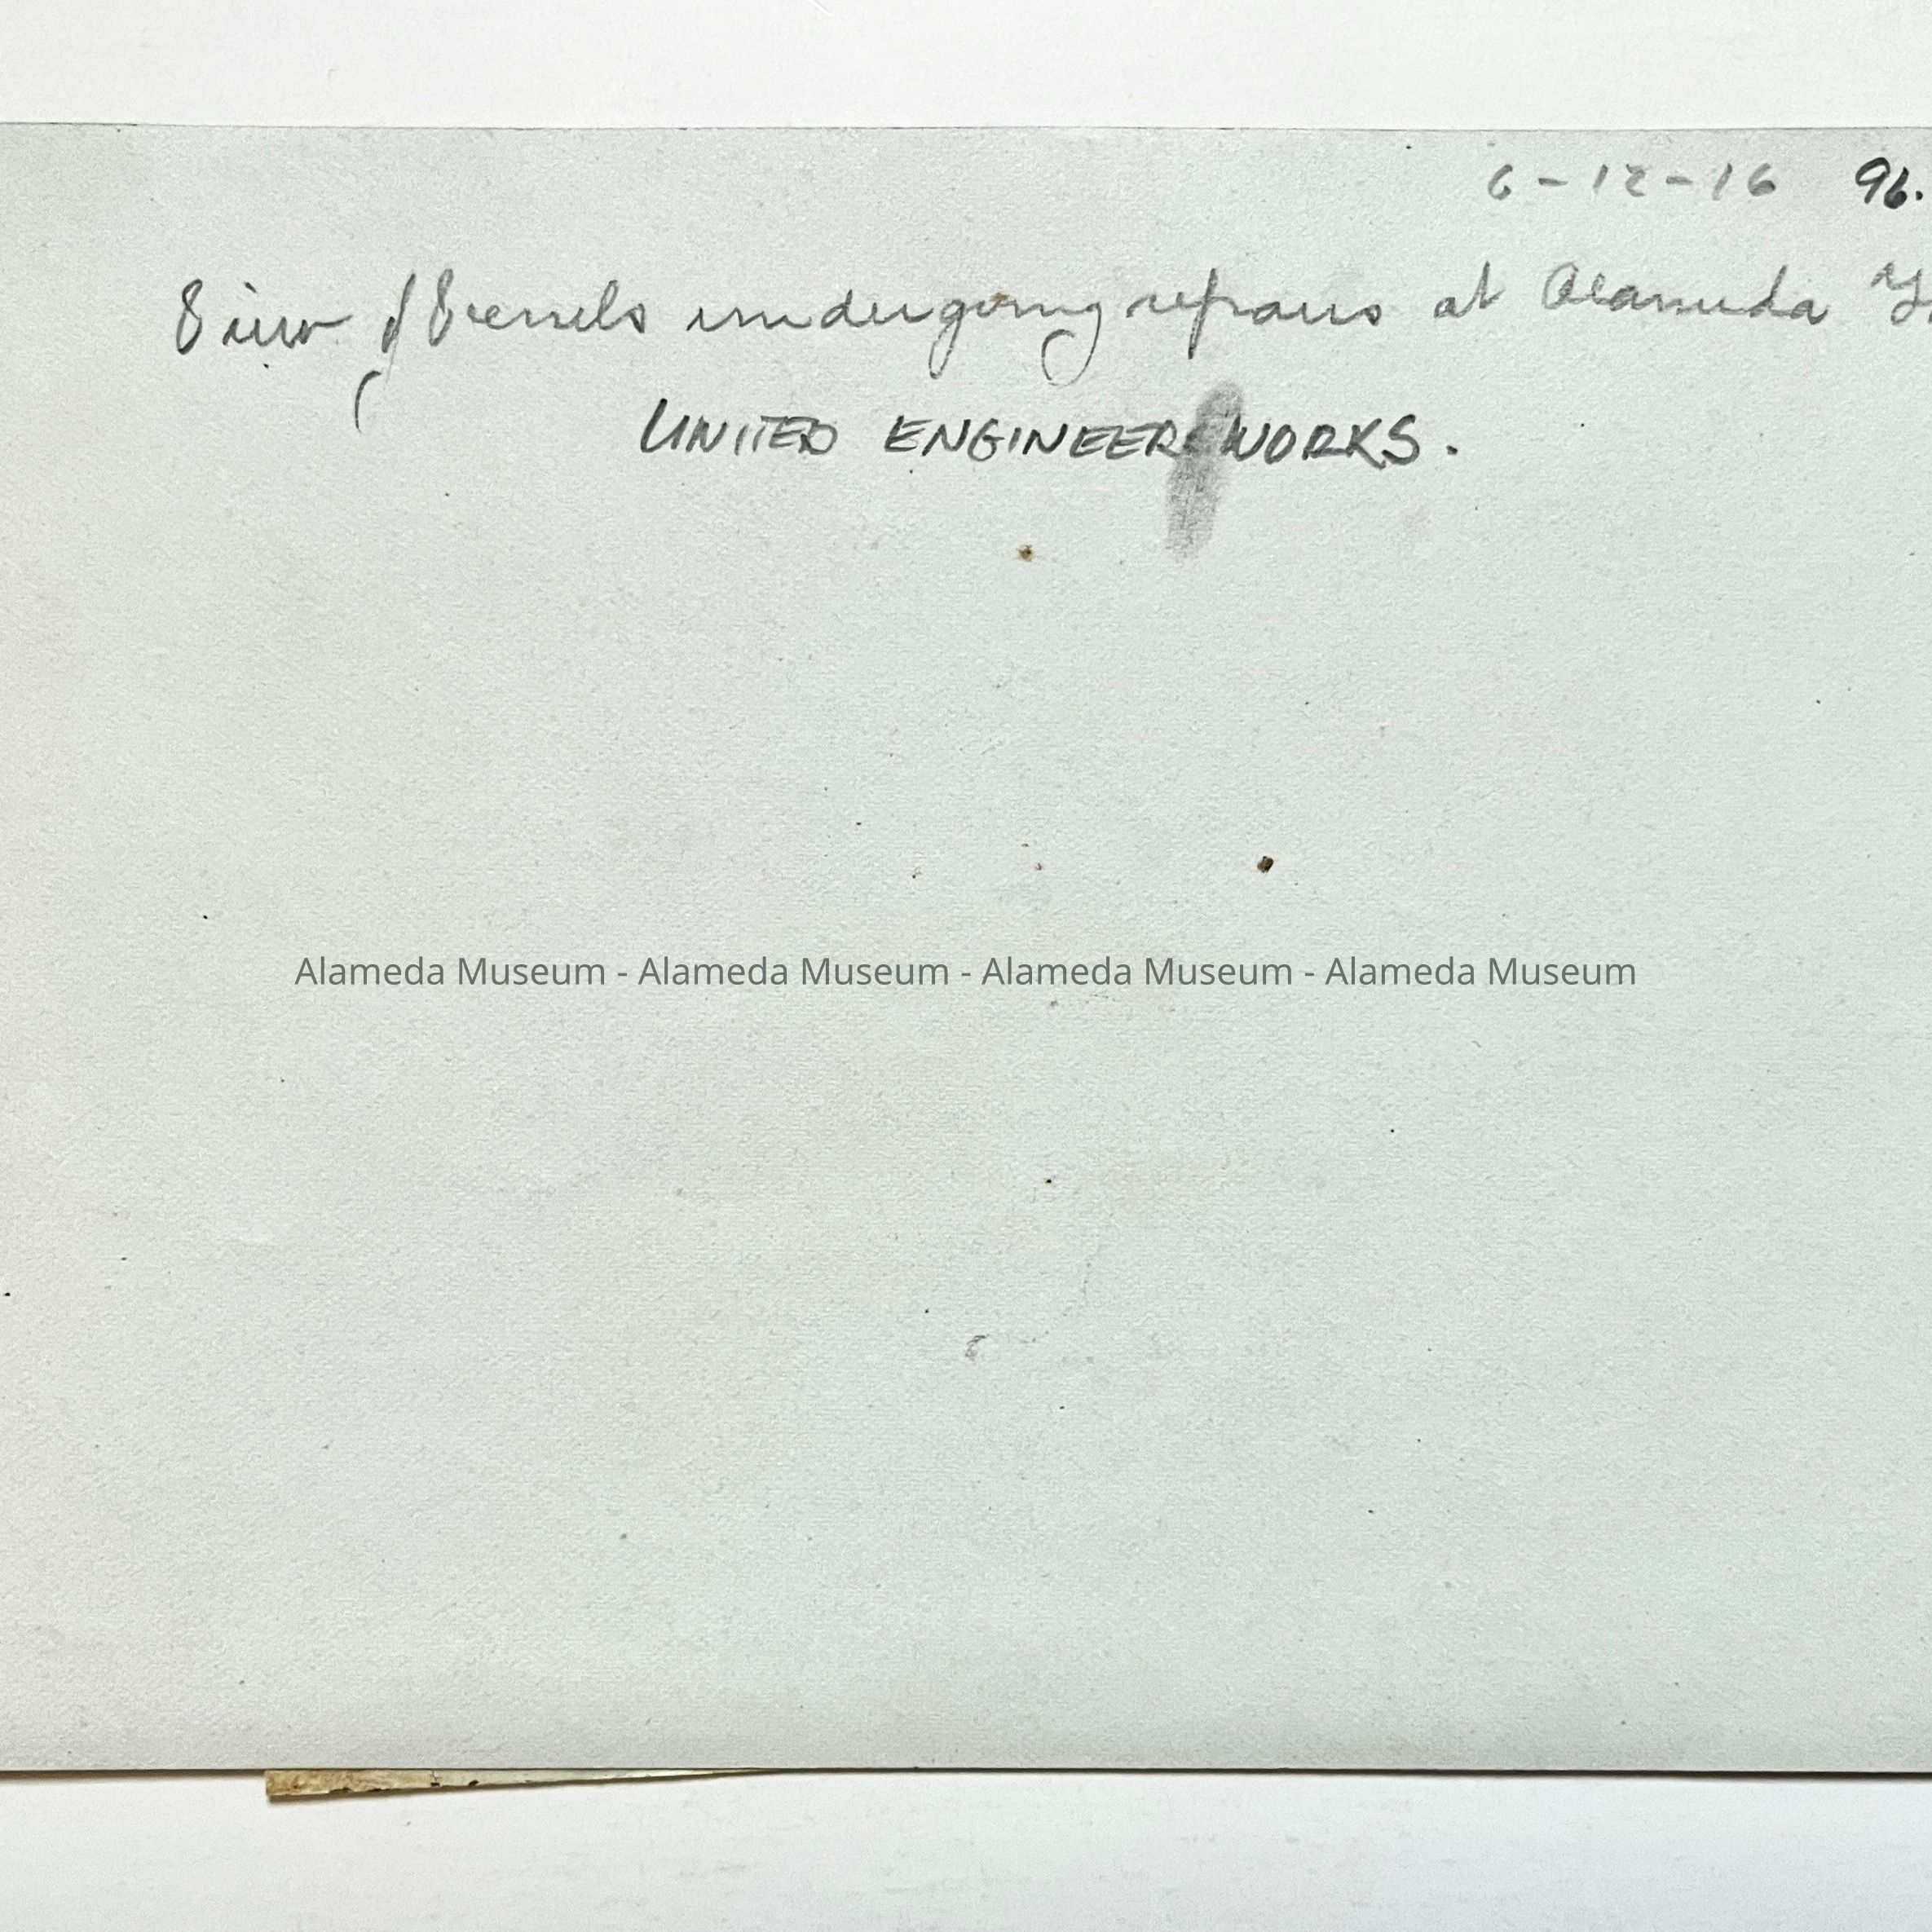 6-12-16 96.
View of Vessels undergoing repairs at Alameda
UNITED ENGINEER WORKS.
Alameda Museum - Alameda Museum - Alameda Museum - Alameda Museum